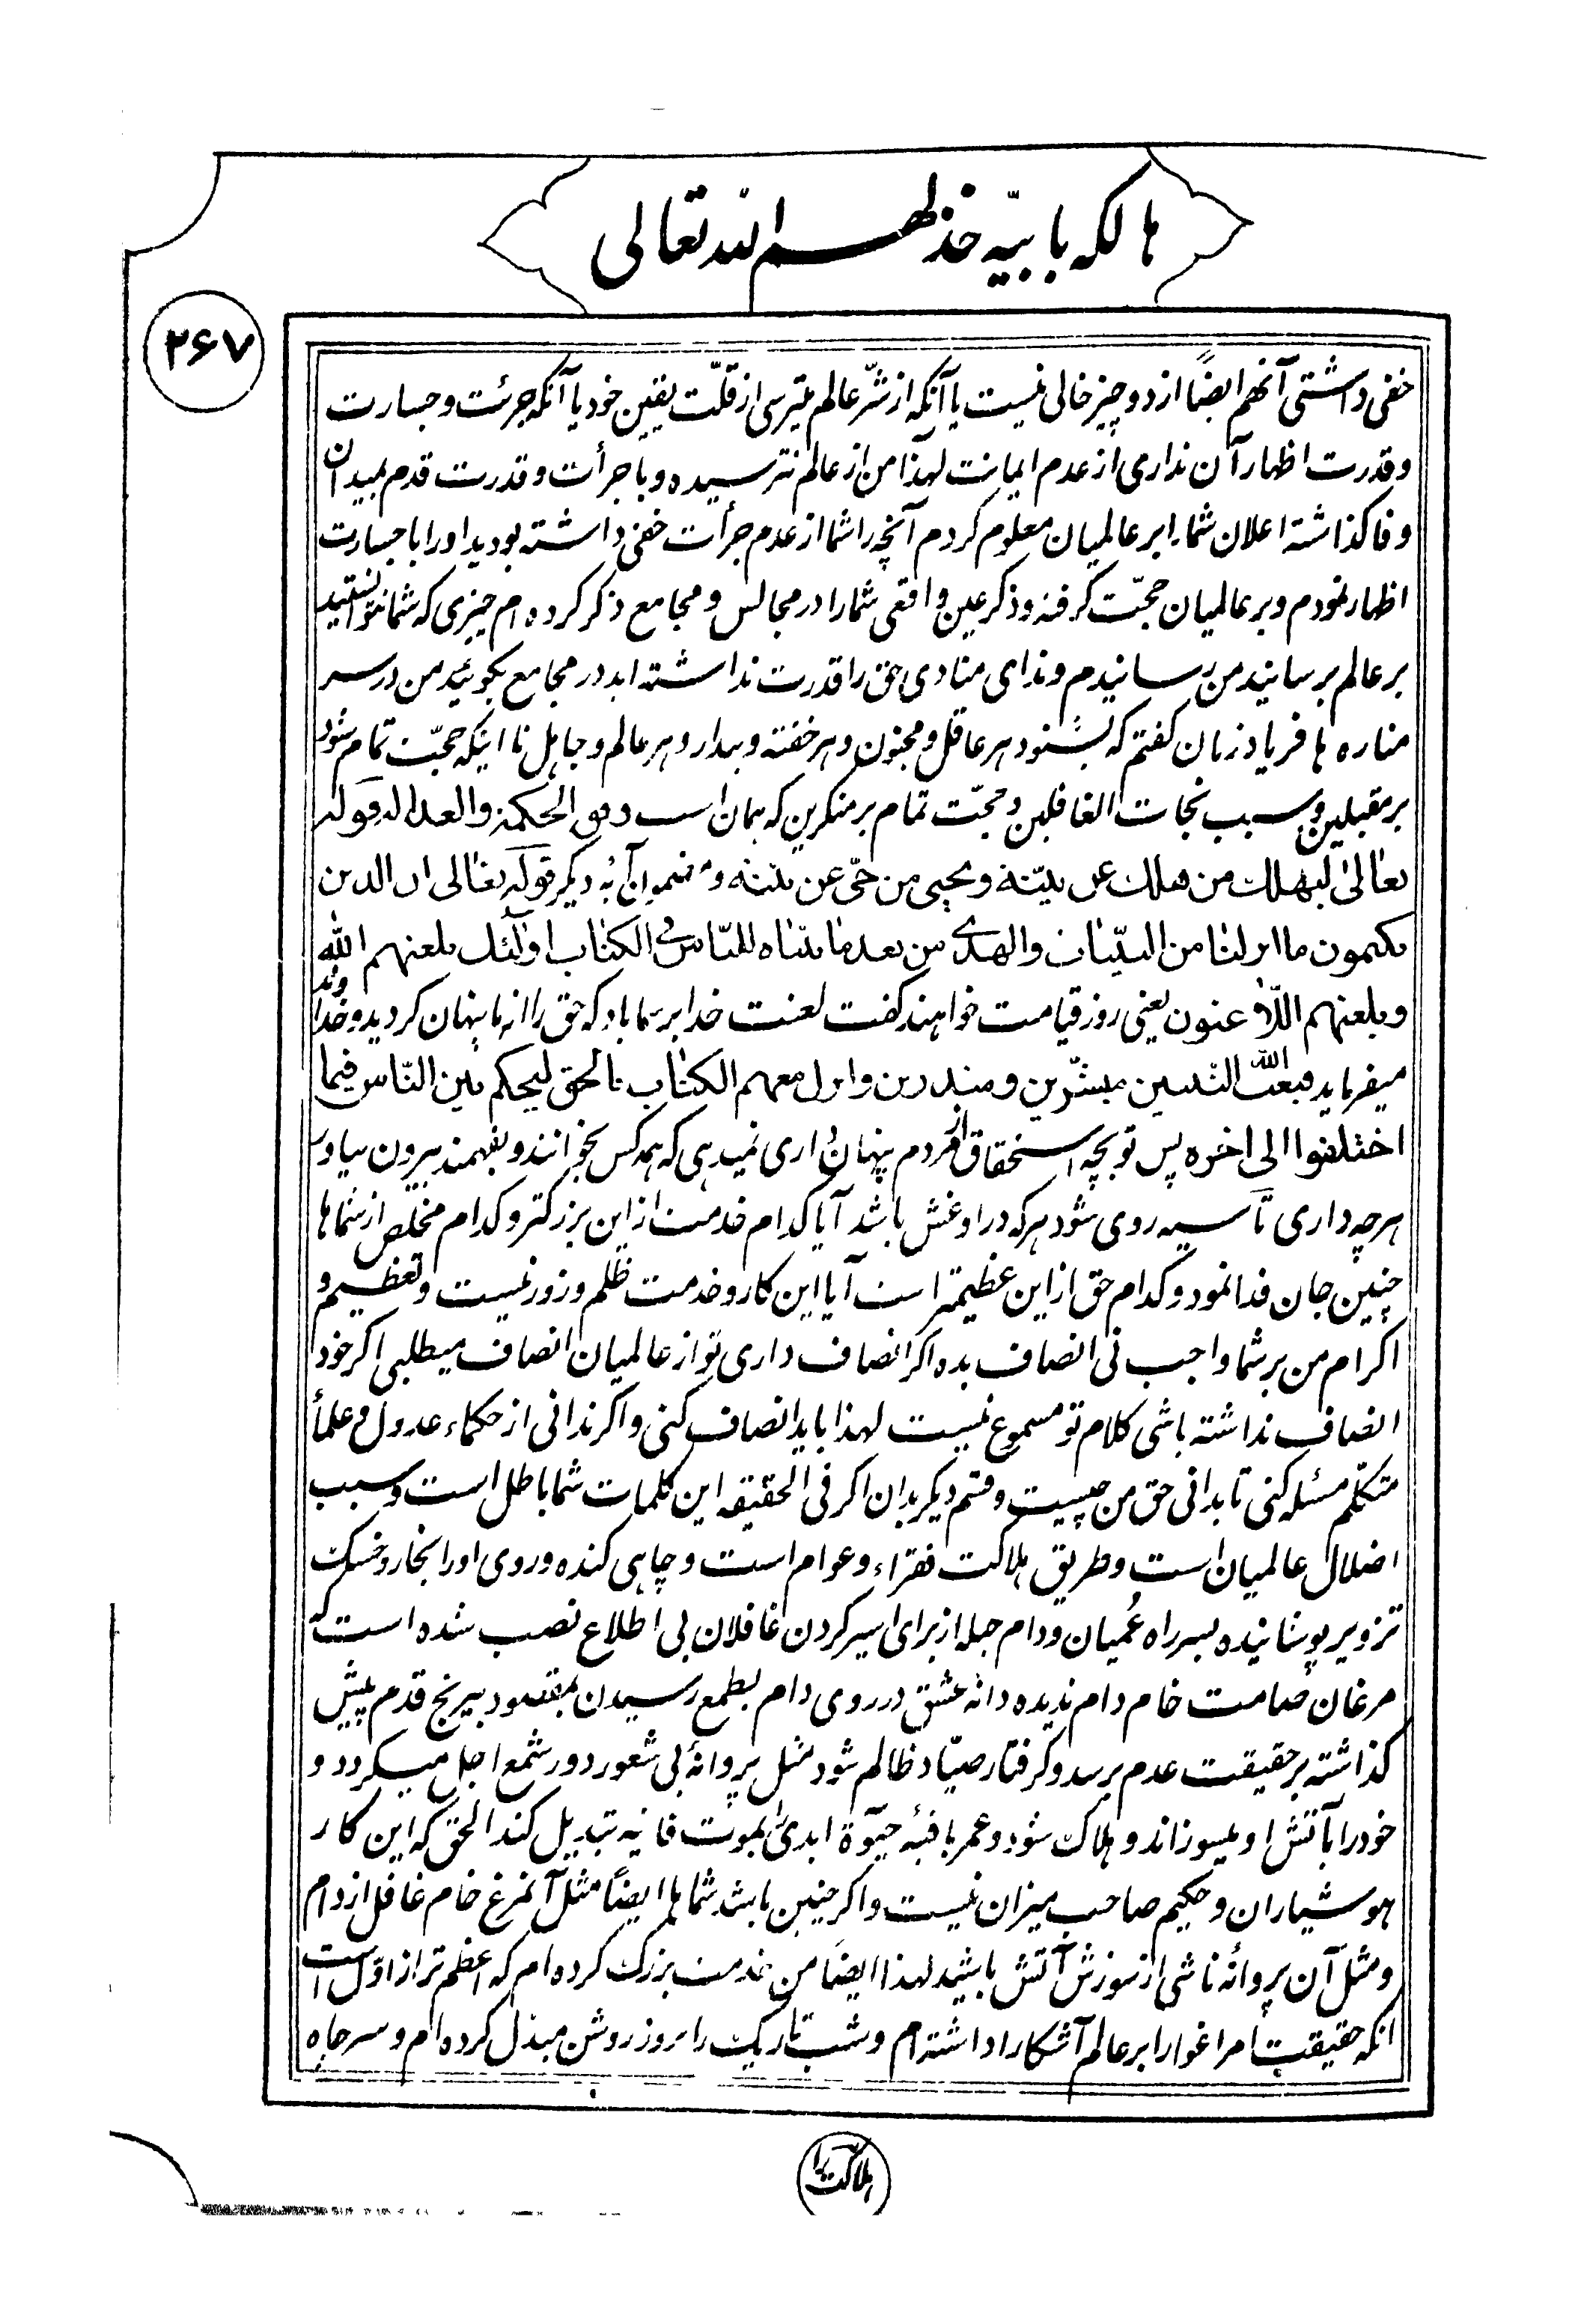 هالکه بابیّه خذلهم الله تعالی
۲۶۷
خفی داشتی آنهم ایضاً از دو چیز خالی نیست یا آنکه از شرّ عالم میترسی از قلّت یقین خود یا آنکه جرئت و جسارت
و قدرت اظهار آن نداری از عدم ایمانت لهذا من از عالم نترسیده و با جرأت و قدرت قدم بمیدان
وفا گذاشته اعلان شما را بر عالمیان معلوم کردم آنچه را شما از عدم جرأت خفی داشته بودید او را با جسارت
اظهار نمودم و بر عالمیان حجّت گرفته و ذکر عین واقعی شما را در مجالس و مجامع ذکر کرده ام چیزی که شما نتوانستید
بر عالم برسانید من رسانیدم و ندای منادی حق را قدرت نداشته اید در مجامع بگوئید من در سر
مناره ها فریاد زنان گفتم که بشنود هر عاقل و مجنون و هر خفته و بیدار و هر عالم و جاهل تا اینکه حجّت تمام شود
بر مقبلین و سبب نجات الغافلین و حجّت تمام بر منکرین که همان است وفق الحکمة والعدالة قوله
تعالی لیهلک من هلک عن بیّنة و یحیی من حیّ عن بیّنة و مضمون آیهٔ دیگر قوله تعالی ان الذین
یکتمون ما انزلنا من البیّنات والهدی من بعد ما بیّنّاه للنّاس فی الکتاب اولئک یلعنهم الله
و یلعنهم اللّاعنون یعنی روز قیامت خواهند گفت لعنت خدا بر شما باد که حق را از ما پنهان کردید و خداوند
میفرماید فبعث الله النبیین مبشّرین و منذرین و انزل معهم الکتاب بالحق لیحکم بین النّاس فیما
اختلفوا الی اخره پس تو بچه استحقاق از مردم پنهان داری نمیدهی که همه کس بخوانند و بفهمند بیرون بیاور
هرچه داری تا سیه روی شود هرکه در او غش باشد آیا کدام خدمت از این بزرگتر و کدام مخلص از شماها
چنین جان فدا نمود و کدام حق از این عظیمتر است آیا این کار و خدمت ظلم و زور نیست و تعظیم و
اکرام من بر شما واجب نی انصاف بده اگر انصاف داری تو از عالمیان انصاف میطلبی اگر خود
انصاف نداشته باشی کلام تو مسموع نیست لهذا باید انصاف کنی و اگر ندانی از حکماء عدول و علمأ
متکلّم مسئله کنی تا بدانی حق من چیست و قسم دیگر بدان اگر فی الحقیقه این کلمات شما باطل است و سبب
اضلال عالمیان است و طریق هلاکت فقراء و عوام است و چاهی کنده و روی او را بخار و خسک
تزویر پوشانیده بسر راه عُمیان و دام حیله از برای اسیر کردن غافلان بی اطلاع نصب شده است که
مرغان صامت خام دام ندیده دانه عشق در روی دام بطمع رسیدن بمقصود بیرنج قدم پیش
گذاشته بر حقیقت عدم برسد و گرفتار صیّاد ظالم شود مثل پروانهٔ بی شعور دور شمع اجل میگردد و
خود را بآتش او میسوزاند و هلاک شود و عمر باقیه حیوة ابدی را بموت فانیه تبدیل کند الحق که این کار
هوشیاران و حکیم صاحب میزان نیست و اگر چنین باشد شماها ایضاً مثل آنمرغ خام غافل از دام
و مثل آن پروانهٔ ناشی از سوزش آتش باشید لهذا ایضاً من خدمت بزرگ کرده ام که اعظم تر از اوّل است
انکه حقیقت امر اغوا را بر عالم آشکارا داشته ام و شب تاریک را بروز روشن مبدّل کرده ام و سر چاه
هلاکت را